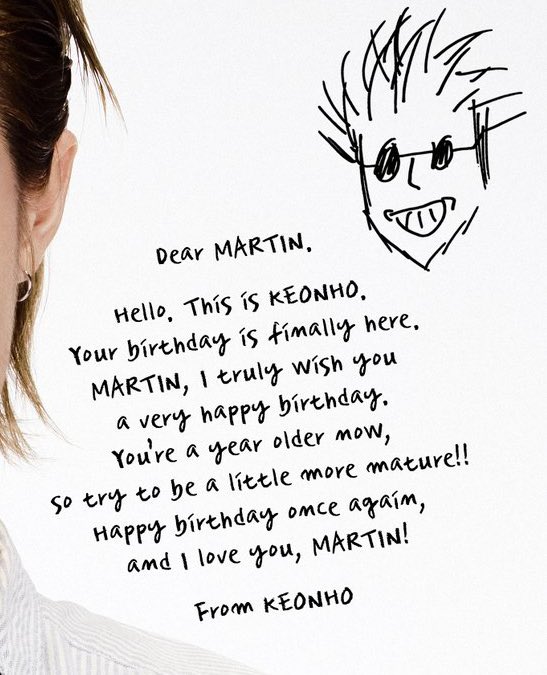 Dear MARTIN.
Hello. This is KEONHO.
Your birthday is finally here.
MARTIN, I truly wish you
a very happy birthday.
You're a year older now,
so try to be a little more mature!!
Happy birthday once again,
and I love you, MARTIN!
From KEONHO